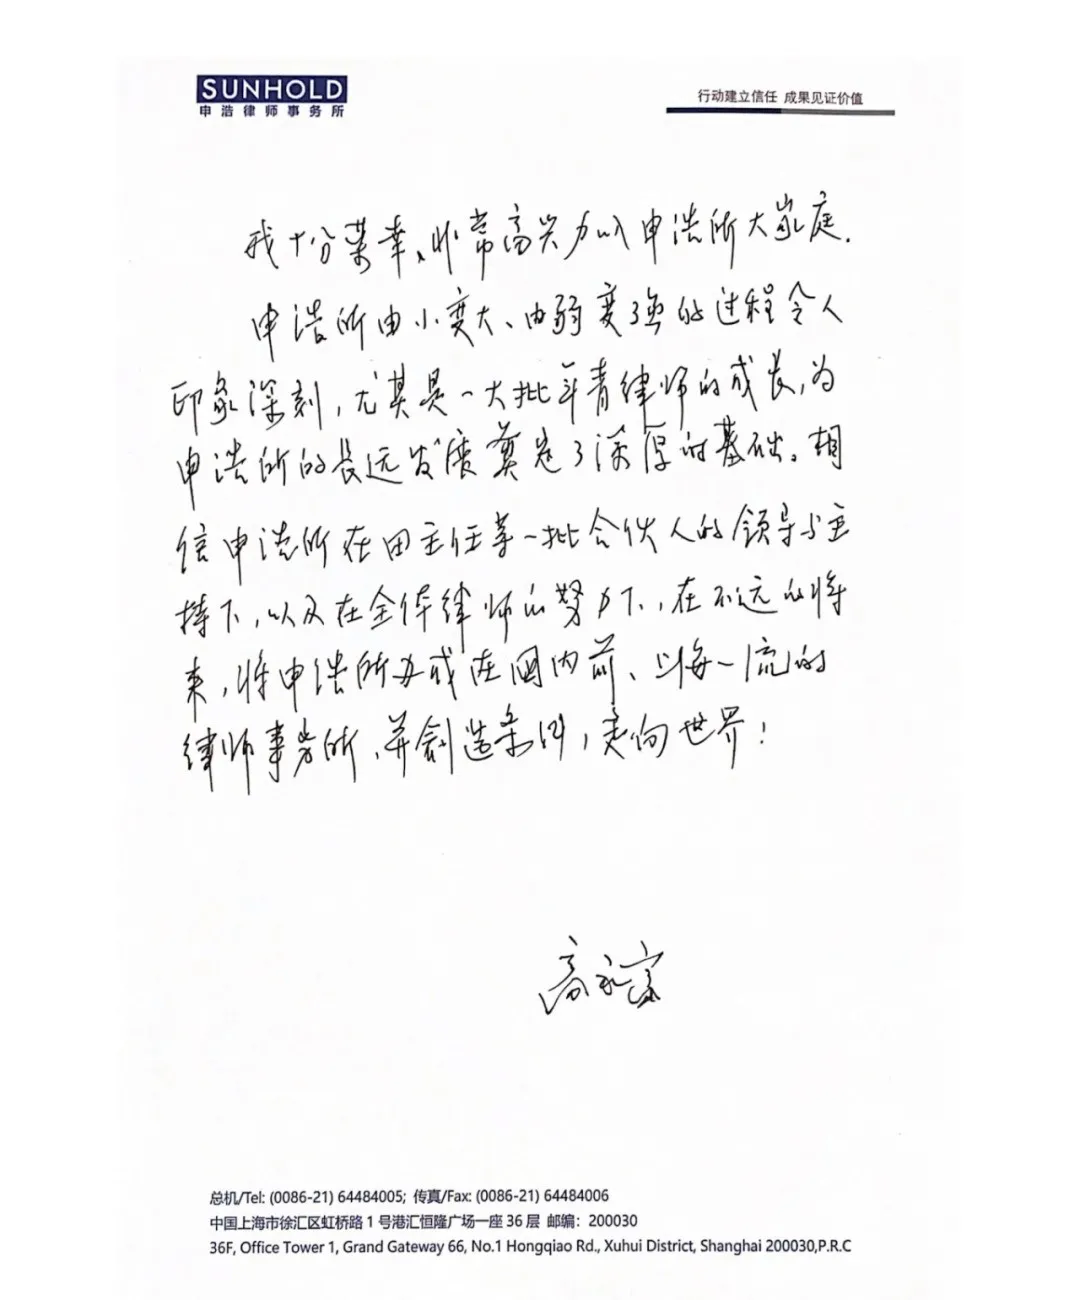 SUNHOLD
申浩律师事务所
行动建立信任 成果见证价值
我十分荣幸、非常高兴加入申浩所大家庭.
申浩所由小变大、由弱变强的过程令人
印象深刻，尤其是一大批年青律师的成长，为
申浩所的长远发展奠定了深厚的基础。相
信申浩所在田主任等一批合伙人的领导与主
持下，以及在全体律师的努力下，在不远的将
来，将申浩所办成在国内前、上海一流的
律师事务所，并创造条件，走向世界！
高永富
总机/Tel: (0086-21) 64484005; 传真/Fax: (0086-21) 64484006
中国上海市徐汇区虹桥路1号港汇恒隆广场一座36层 邮编：200030
36F, Office Tower 1, Grand Gateway 66, No.1 Hongqiao Rd., Xuhui District, Shanghai 200030,P.R.C